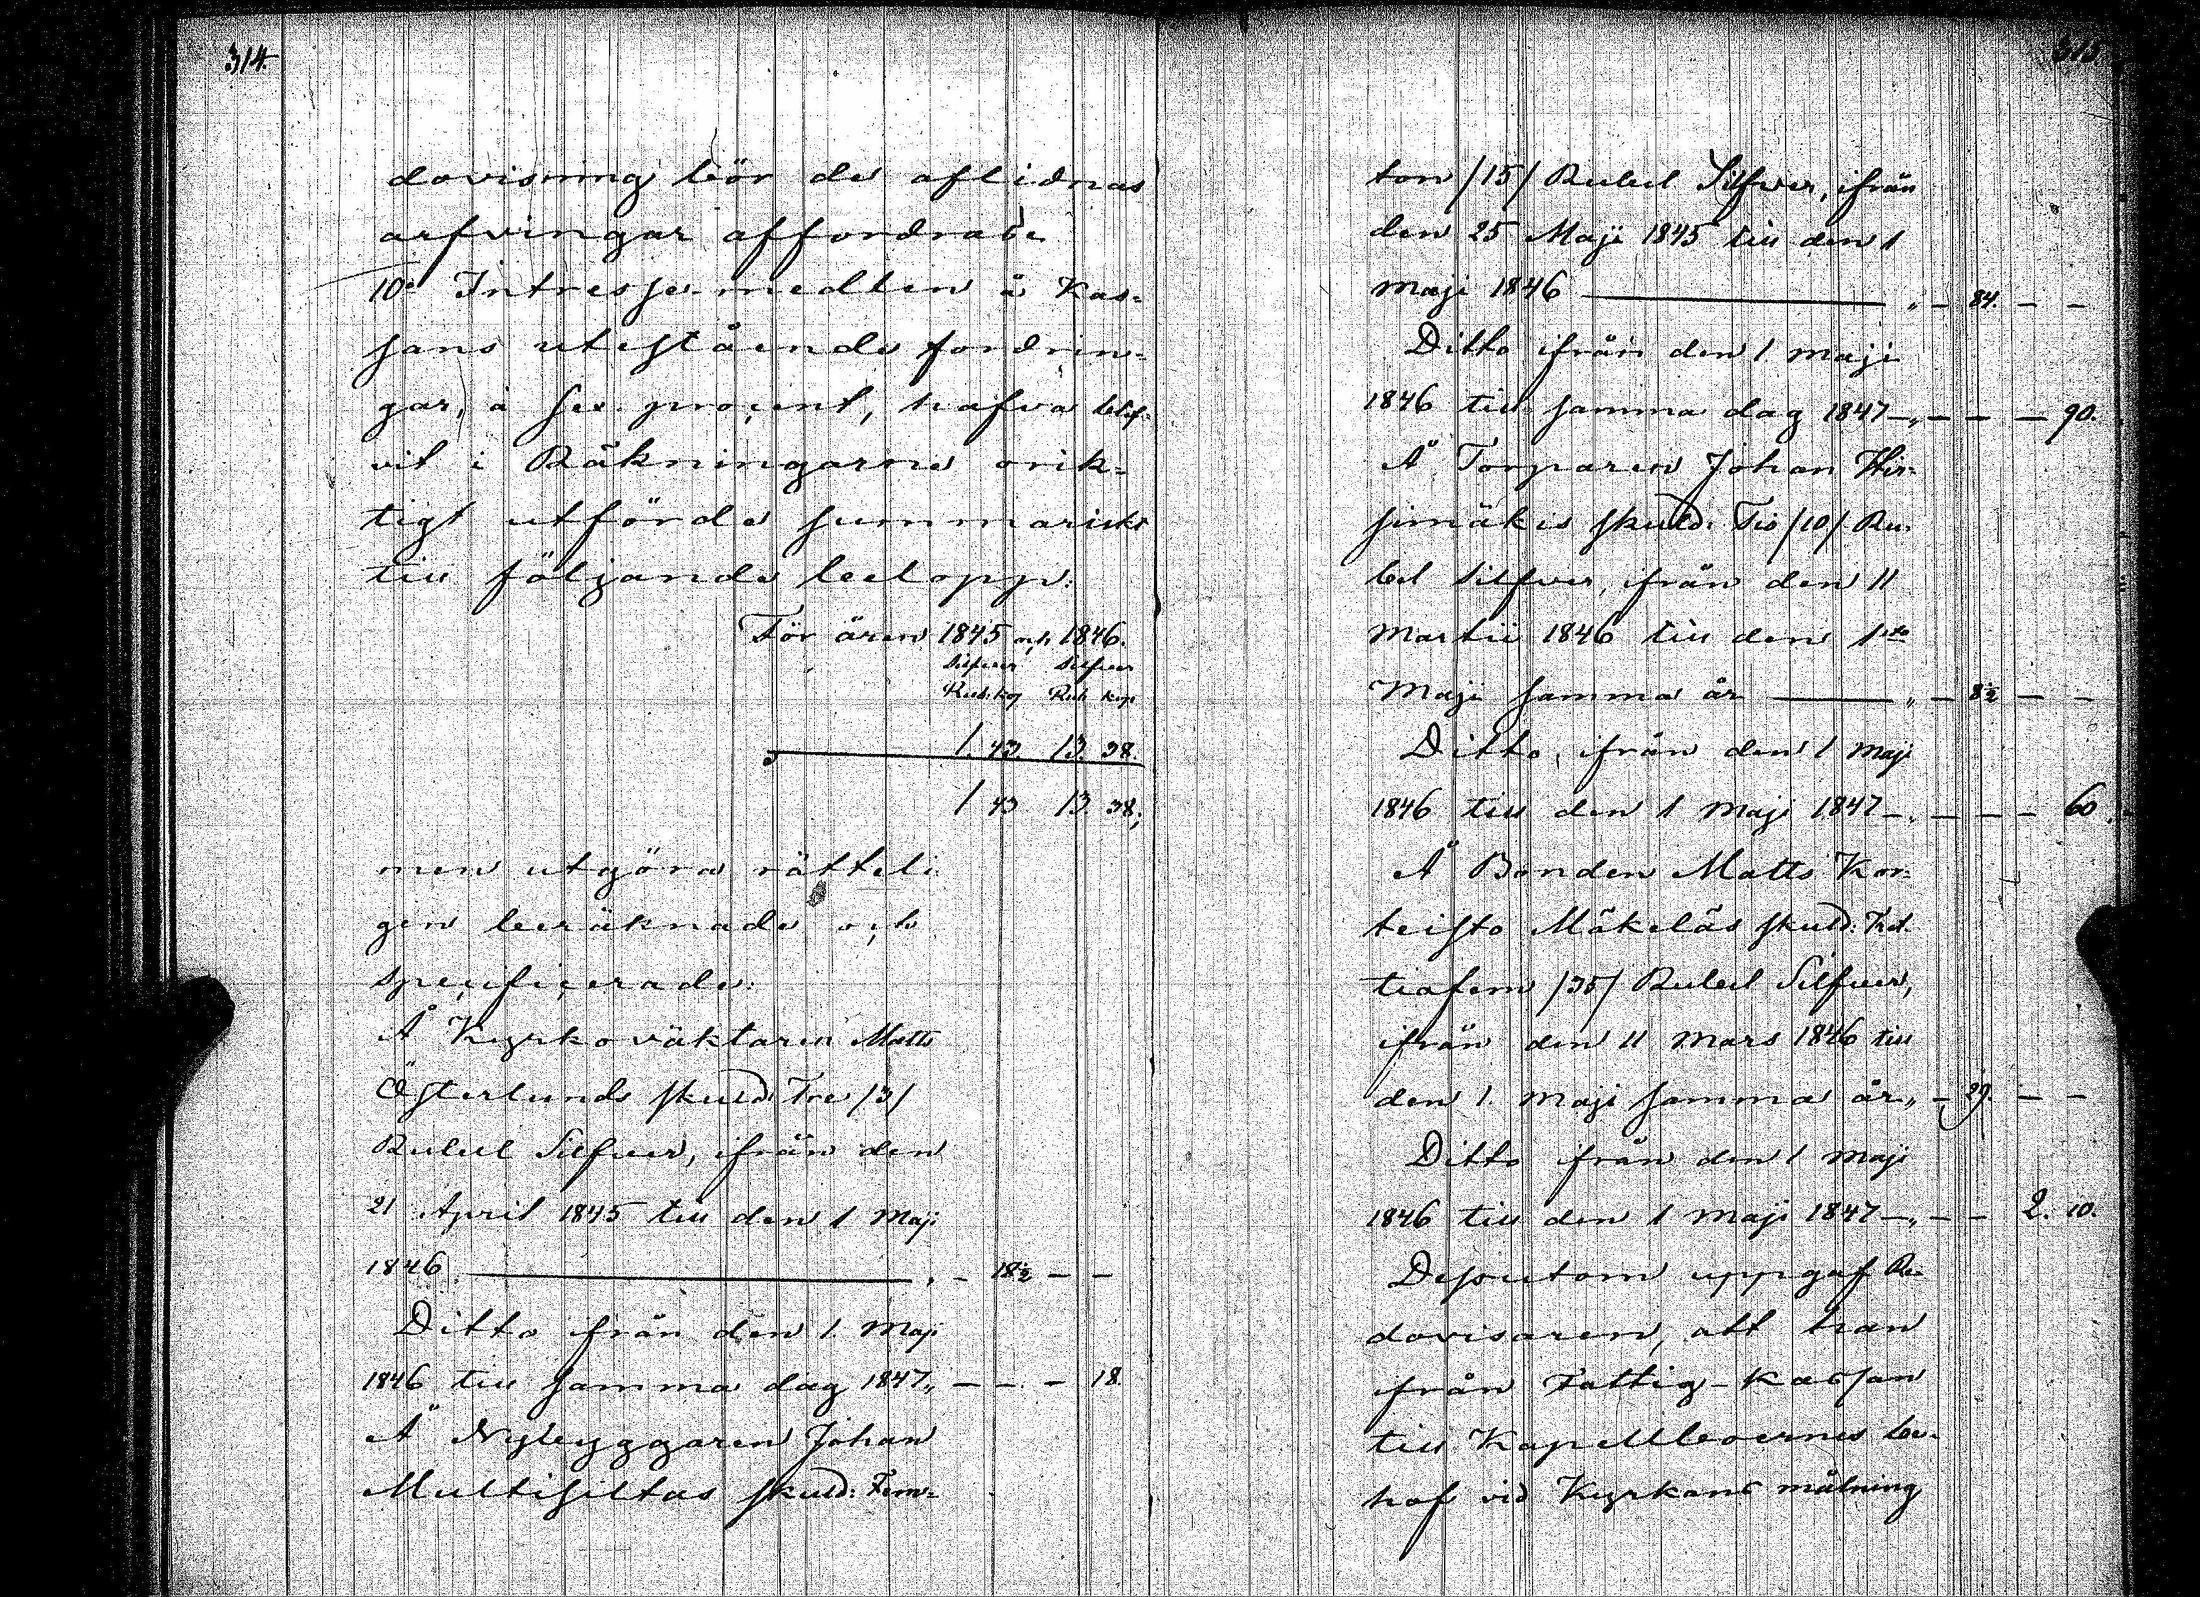 314.
dovisning bör de aflidnas
arfvingar affordras.
10o Intresse-medlen å Kas-
sans utestående fordrin-
gar, à sex procent, hafva blif-
vit i Räkningarne orik-
tigt utförde summariskt
till följande belopp:
För åren 1845 och 1846.
Silfver Silfver
Rub. kop Rub kop
1. 43. 13. 38.
1 43 13. 38;
men utgöra rätteli
gen beräknade och
specificerade:
Å Kyrkoväktaren Matts
Österlunds skuld: Tre /3/
Rubel Silfver, ifrån den
21 April 1845 till den 1 Maji
1846. — „ — 18½ — —
Ditto från den 1. Maji
1846 till samma dag 1847 „ — — — 18.
Å Nybyggaren Johan
Multisiltas skuld: Fem-
315
ton /15/ Rubel Silfver, ifrån
den 25 Maji 1845 till den 1
Maji 1846 — „ — 84. — —
Ditto ifrån den 1 Maji
1846 till samma dag 1847 — „ — — — 90.
Å Torparen Johan Hir-
simäkis skuld: Tio /10/ Ru-
bel Silfver, ifrån den 11
Martii 1846 till den 1sta
Maji samma år — „ — 8½ — —
Ditto, ifrån den 1 Maji
1846 till den 1 Maji 1847 — „ — — — 60.
Å Bonden Matts Kor-
teisto Mäkeläs skuld: Tret-
tiofem /35/ Rubel Silfver,
ifrån den 11 Mars 1846 till
den 1. Maji samma år „ — 29. — —
Ditto ifrån den 1 Maji
1846 till den 1 Maji 1847 — „ — — 2. 10.
Dessutom uppgaf Re-
dovisaren, att han
från Fattig-Kassan
till Kapellboernes be-
hof vid Kyrkans målning